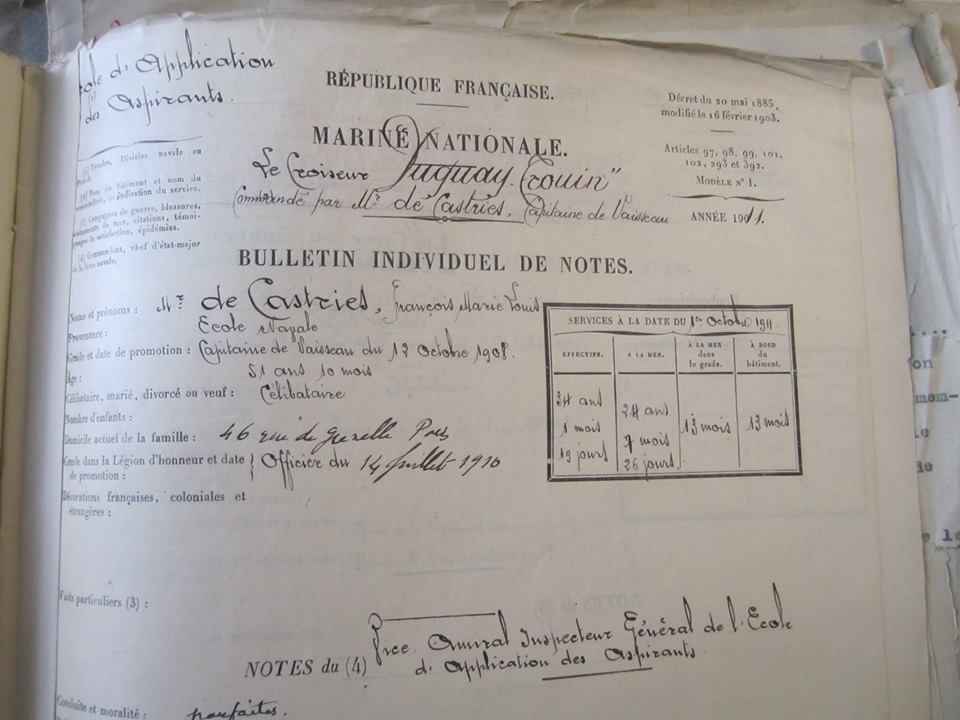 ole d'Application
(1)
des Aspirants.
RÉPUBLIQUE FRANÇAISE.
Décret du 20 mai 1885,
modifié le 16 février 1903.
MARINE NATIONALE.
Le Croiseur "Duguay-Trouin"
Commandé par Mr de Castries, Capitaine de Vaisseau
Articles 97, 98, 99, 101,
102, 293 et 392.
MODÈLE N° 1.
ANNÉE 1911.
(1) Escadre, Division navale ou
(2) Nom du bâtiment et nom du
commandant, ou indication du service.
(3) Campagnes de guerre, blessures,
événements de mer, citations, témoi-
gnages de satisfaction, épidémies.
(4) Commandant, chef d'état-major
de la force navale.
BULLETIN INDIVIDUEL DE NOTES.
Noms et prénoms : Mr de Castries, François Marie Louis
Provenance : Ecole Navale
Grade et date de promotion : Capitaine de Vaisseau du 12 Octobre 1908.
Âge : 51 ans 10 mois
Célibataire, marié, divorcé ou veuf : Célibataire
Nombre d'enfants :
Domicile actuel de la famille : 46 rue de Grenelle Paris
Grade dans la Légion d'honneur et date de promotion : } Officier du 14 Juillet 1910
Décorations françaises, coloniales et
étrangères :
SERVICES À LA DATE DU 1er Octobre 1911.
EFFECTIFS. À LA MER. À LA MER dans le grade. À BORD du bâtiment.
34 ans 1 mois 19 jours
24 ans 7 mois 26 jours
13 mois
13 mois
Faits particuliers (3) :
NOTES du (4) Vice Amiral Inspecteur Général de l'Ecole
d'Application des Aspirants
Conduite et moralité : parfaites.